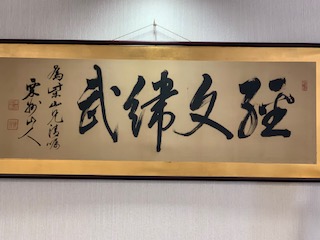 經文緯武
為柴山兄清嘱
山人